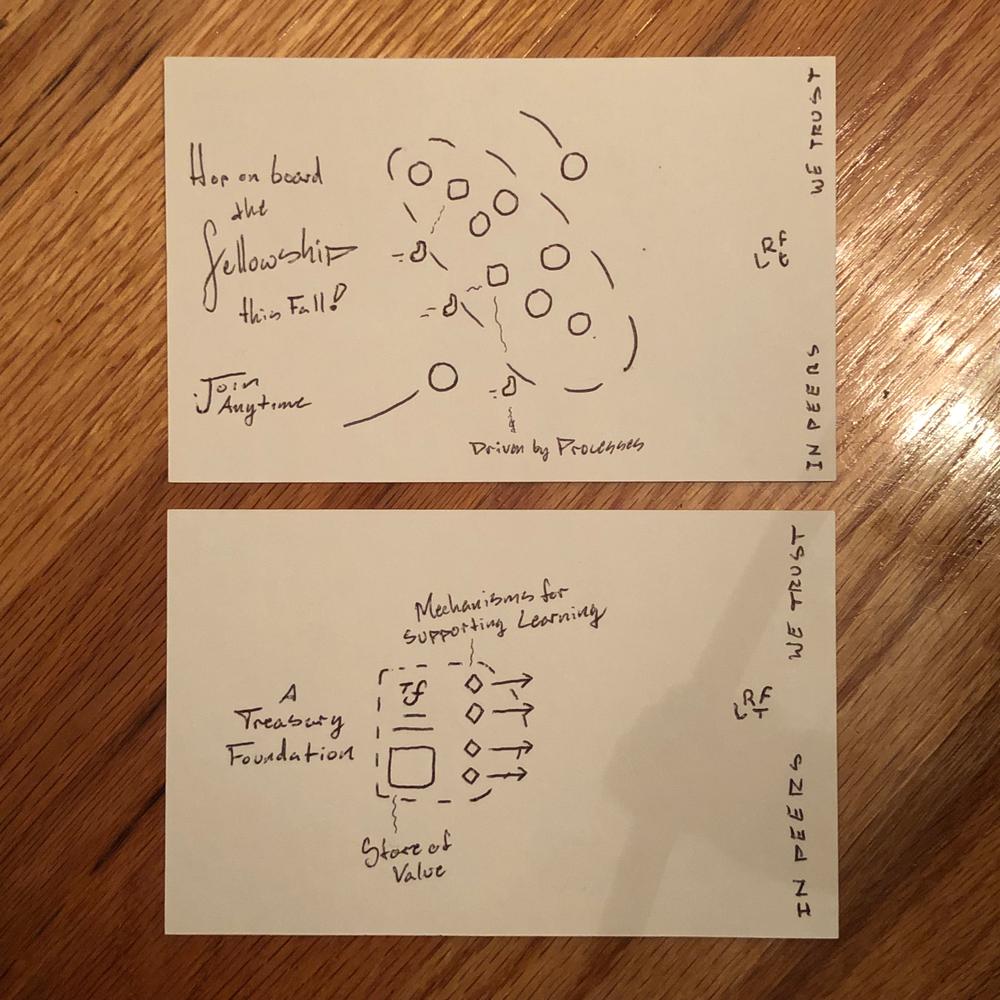 Hop on board
the
fellowship
this Fall!
Join
Anytime
Driven by Processes
IN PEERS WE TRUST
Mechanisms for
supporting Learning
A
Treasury
Foundation
Tf
Store of
Value
IN PEERS WE TRUST